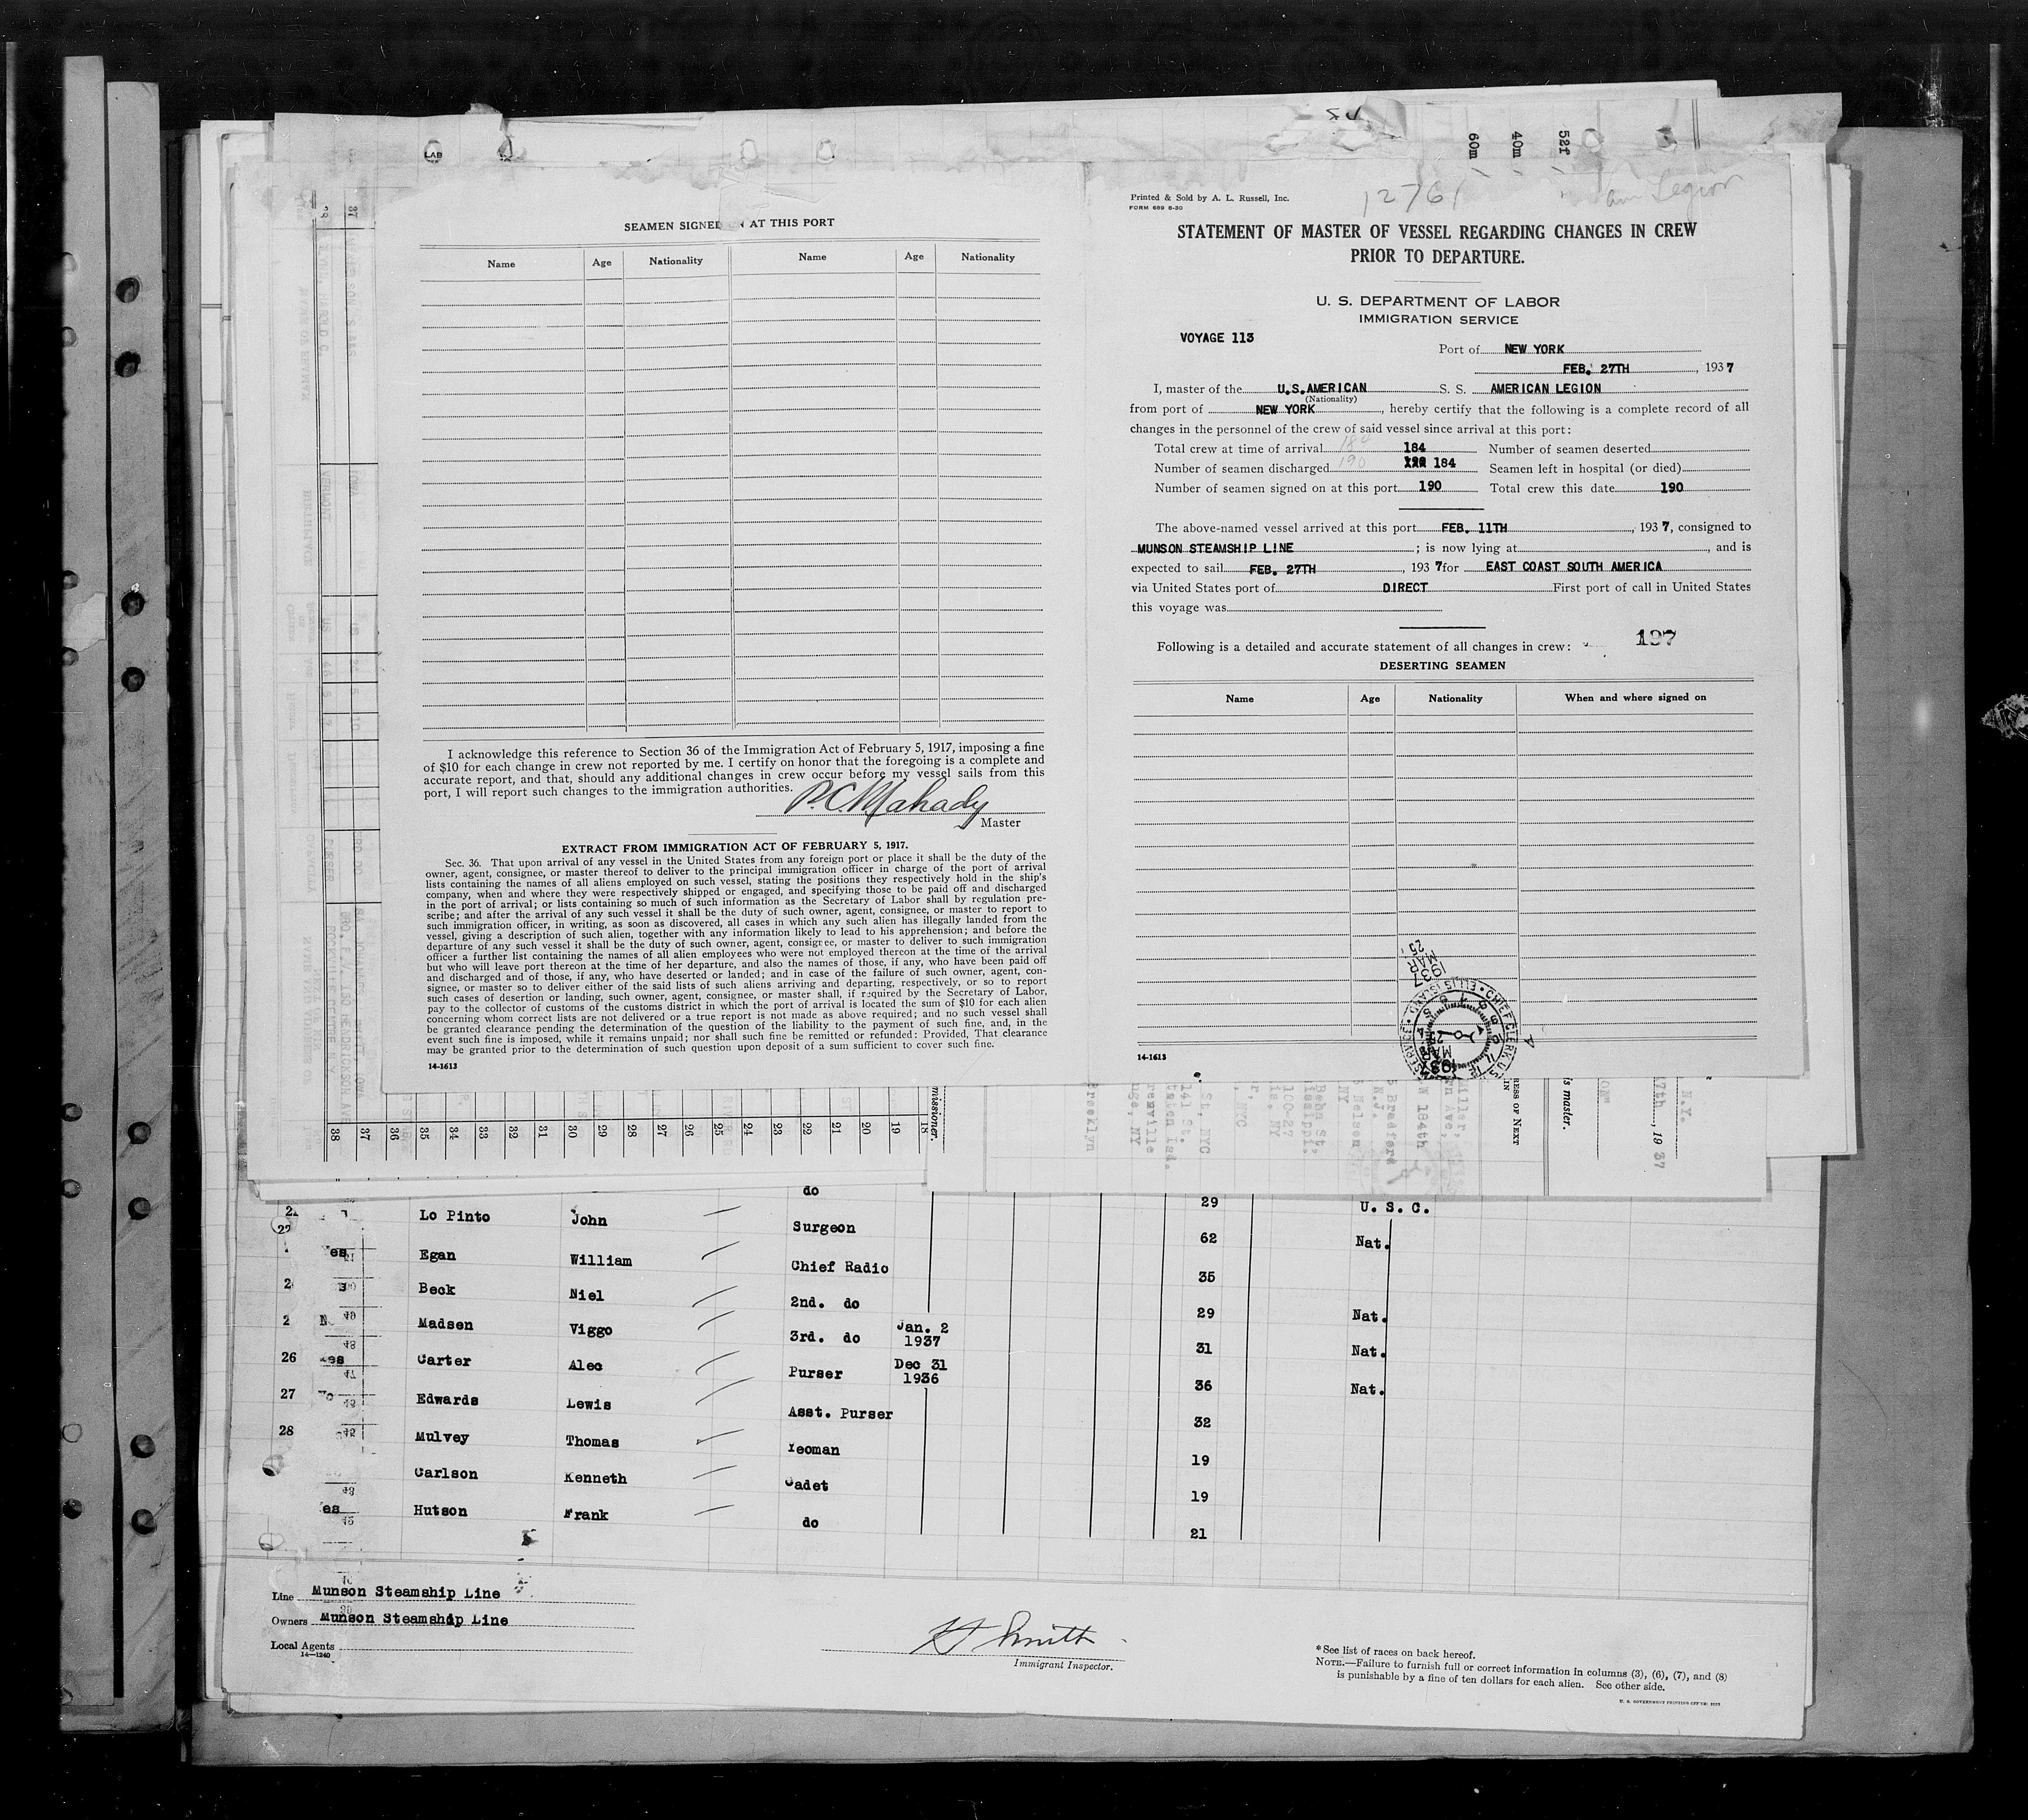 SEAMEN SIGNED AT THIS PORT
Name Age Nationality Name Age Nationality
I acknowledge this reference to Section 36 of the Immigration Act of February 5, 1917, imposing a fine
of $10 for each change in crew not reported by me. I certify on honor that the foregoing is a complete and
accurate report, and that, should any additional changes in crew occur before my vessel sails from this
port, I will report such changes to the immigration authorities.
P.C. Mahady
Master
EXTRACT FROM IMMIGRATION ACT OF FEBRUARY 5, 1917.
Sec. 36. That upon arrival of any vessel in the United States from any foreign port or place it shall be the duty of the
owner, agent, consignee, or master thereof to deliver to the principal immigration officer in charge of the port of arrival
lists containing the names of all aliens employed on such vessel, stating the positions they respectively hold in the ship's
company, when and where they were respectively shipped or engaged, and specifying those to be paid off and discharged
in the port of arrival; or lists containing so much of such information as the Secretary of Labor shall by regulation pre-
scribe; and after the arrival of any such vessel it shall be the duty of such owner, agent, consignee, or master to report to
such immigration officer, in writing, as soon as discovered, all cases in which any such alien has illegally landed from the
vessel, giving a description of such alien, together with any information likely to lead to his apprehension; and before the
departure of any such vessel it shall be the duty of such owner, agent, consignee, or master to deliver to such immigration
officer a further list containing the names of all alien employees who were not employed thereon at the time of the arrival
but who will leave port thereon at the time of her departure, and also the names of those, if any, who have been paid off
and discharged and of those, if any, who have deserted or landed; and in case of the failure of such owner, agent, con-
signee, or master so to deliver either of the said lists of such aliens arriving and departing, respectively, or so to report
such cases of desertion or landing, such owner, agent, consignee, or master shall, if required by the Secretary of Labor,
pay to the collector of customs of the customs district in which the port of arrival is located the sum of $10 for each alien
concerning whom correct lists are not delivered or a true report is not made as above required; and no such vessel shall
be granted clearance pending the determination of the question of the liability to the payment of such fine, and, in the
event such fine is imposed, while it remains unpaid; nor shall such fine be remitted or refunded: Provided, That clearance
may be granted prior to the determination of such question upon deposit of a sum sufficient to cover such fine.
14-1613
60m 40m 52f
Printed & Sold by A. L. Russell, Inc.
FORM 689 8-30
12761 Am Legion
STATEMENT OF MASTER OF VESSEL REGARDING CHANGES IN CREW
PRIOR TO DEPARTURE.
U. S. DEPARTMENT OF LABOR
IMMIGRATION SERVICE
VOYAGE 113
Port of NEW YORK
FEB. 27TH, 1937
I, master of the U.S.AMERICAN S. S. AMERICAN LEGION
(Nationality)
from port of NEW YORK, hereby certify that the following is a complete record of all
changes in the personnel of the crew of said vessel since arrival at this port:
Total crew at time of arrival 184 184 Number of seamen deserted
Number of seamen discharged 190 184 Seamen left in hospital (or died)
Number of seamen signed on at this port 190 Total crew this date 190
The above-named vessel arrived at this port FEB. 11TH, 1937, consigned to
MUNSON STEAMSHIP LINE; is now lying at, and is
expected to sail FEB. 27TH, 1937 for EAST COAST SOUTH AMERICA
via United States port of DIRECT First port of call in United States
this voyage was
Following is a detailed and accurate statement of all changes in crew: 197
DESERTING SEAMEN
Name Age Nationality When and where signed on
1937 MAR 25
CHIEF CLERK ELLIS ISLAND
14-1613
38 37 36 35 34 33 32 31 30 29 28 27 26 25 24 23 22 21 20 19 18
do 29 U. S. C.
Lo Pinto John Surgeon 62 Nat.
Egan William Chief Radio 35
Beck Niel 2nd. do 29 Nat.
Madsen Viggo 3rd. do Jan. 2 1937 31 Nat.
26 Carter Alec Purser Dec 31 1936 36 Nat.
27 Edwards Lewis Asst. Purser 32
28 Mulvey Thomas Yeoman 19
Carlson Kenneth Cadet 19
Hutson Frank do 21
Line Munson Steamship Line
Owners Munson Steamship Line
Local Agents
14-1240
Smith
Immigrant Inspector.
*See list of races on back hereof.
NOTE.—Failure to furnish full or correct information in columns (3), (6), (7), and (8)
is punishable by a fine of ten dollars for each alien. See other side.